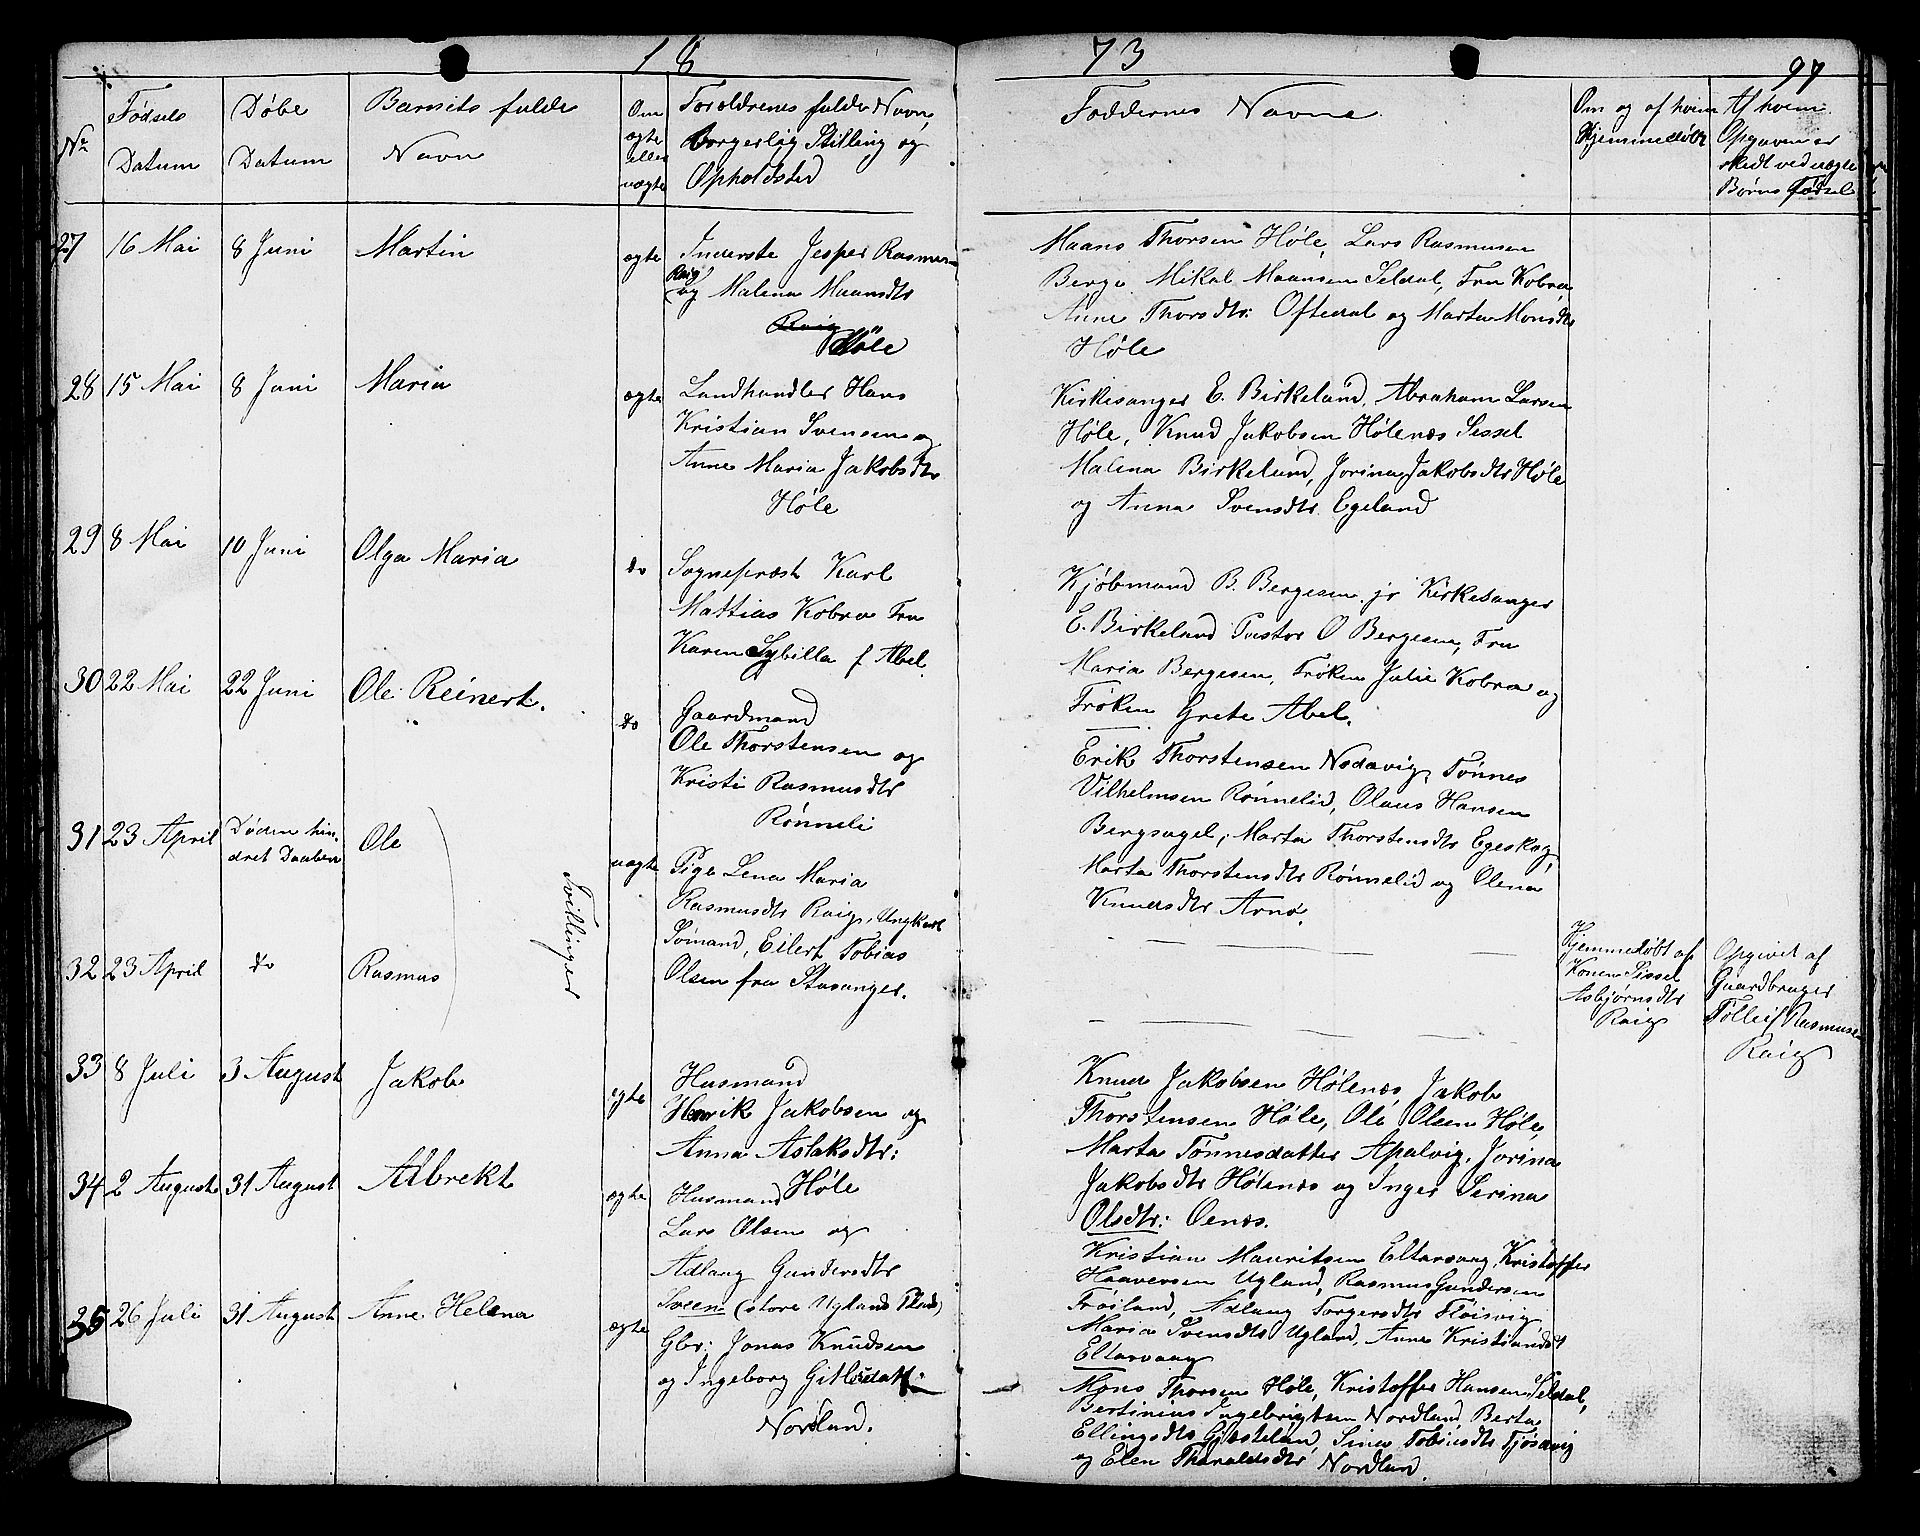 18 73
97
No
Fødsels Datum
Døbe Datum
Barnets fulde Navn
Om ægte eller uægte
Foroldrenes fulde Navn,
Borgerlig Stilling og
Opholdsted
Faddernes Navne
Om og af hvem
Hjemmedøbt
Af hvem
Opgaven er
skedt ved uægte
Børns Fødsel
27 16 Mai 8 Juni Martin ægte
Inderste Jesper Rasmusen
Raig
og Malena Maansdtr
Høle
Maans Thorsen Høle, Lars Rasmusen
Berge Mikal Maansen Seldal, Fru Kobro
Anne Thorsdtr: Oftedal og Marta Monsdtr
Høle
28 15 Mai 8 Juni Maria ægte
Landhandler Hans
Kristian Svensen og
Anne Maria Jakobsdtr
Høle
Kirkesanger E. Birkeland, Abraham Larsen
Høle, Knud Jakobsen Hølenes Sissel
Malena Birkeland, Jorina Jakobsdtr Høle
og Anna Svensdtr. Egeland
29 8 Mai 10 Juni Olga Maria do
Sogneprest Karl
Mattias Kobro Fru
Karen Sybilla f Abel.
Kjøbmand B. Bergesen jr Kirkesanger
E. Birkeland Pastor O Bergesen, Fru
Maria Bergesen, Frøken Julie Kobro og
Frøken Grete Abel.
30 22 Mai 22 Juni Ole Reinert. do
Gaardmand
Ole Thorstensen og
Kristi Rasmusdtr
Rønneli
Erik Thorstensen Nodavig, Tønnes
Vilhelmsen Rønnelid, Olaus Hansen
Bergsagel, Marta Thorstensdtr Egeskog,
Marta Thorstensdtr Rønnelid og Olena
Knudsdtr Arnø.
31 23 April Døden hin-
dret Daaben
Ole uægte
Tvillinger
Pige Lena Maria
Rasmusdtr Raig, Ungkarl
Sømand, Eilert Tobias
Olsen fra Stavanger.
32 23 April do Rasmus
Hjemmedøbt af
Konen Sissel
Asbjørnsdtr
Raig
Opgivet af
Gaardbruger
Tølleif Rasmuse
Raig
33 8 Juli 3 August Jakob egte
Husmand
Henrik Jakobsen og
Anna Aslaksdtr:
Høle
Knud Jakobsen Hølenes, Jakob
Thorstensen Høle, Ole Olsen Høle,
Marta Tønnesdatter Apalvig, Jorina
Jakobsdtr Hølenes og Inger Serina
Olsdtr: Oenes.
34 2 August 31 August Albrekt ægte
Husmand
Lars Olsen og
Adlaug Gundersdtr
Sveen (store Ugland Plads)
Kristian Mauritsen Eltarvaag, Kristoffer
Haaversen Ugland, Rasmus Gundersen
Frøiland, Adlaug Torgersdtr Fløisvig
Maria Svensdtr Ugland, Anne Kristiansdt
Eltarvaag
35 26 Juli 31 August Anne Helena ægte
Gbr: Jonas Knudsen
og Ingeborg Gitlesdatt:
Nordland.
Mons Thorsen Høle, Kristoffer Hansen Seldal,
Bertinius Ingebrigtsen Nordland, Berta
Ellingsdtr Gjesteland, Sina Tobiasdtr Fjøsavig
og Elen Tharaldsdtr Nordland.